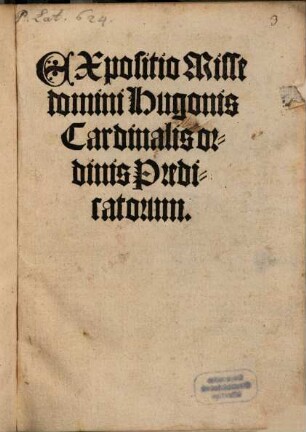 P. Lat. 624.
3
EXpositio Misse
domini Hugonis
Cardinalis or-
dinis Predi-
catorum.